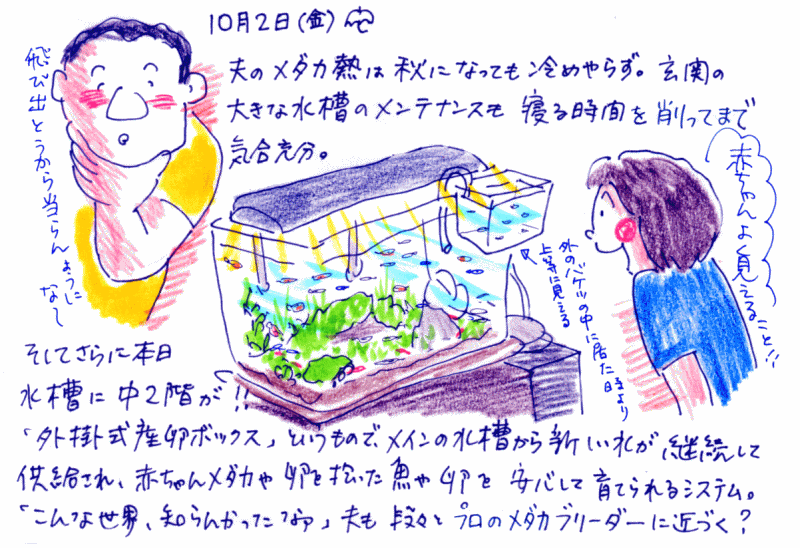 10月2日(金)
夫のメダカ熱は秋になっても冷めやらず。玄関の
大きな水槽のメンテナンスも寝る時間を削ってまで
気合充分。
飛び出とうから当らんように
なぁ〜
赤ちゃんよく見えること!!
外のバケツの中に居た時より
上等に見える
そしてさらに本日
水槽に中2階が!!
「外掛式産卵ボックス」というもので、メインの水槽から新しい水が継続して
供給され、赤ちゃんメダカや卵を抱いた魚や卵を安心して育てられるシステム。
「こんな世界、知らんかったなァ」夫も段々とプロのメダカブリーダーに近づく?